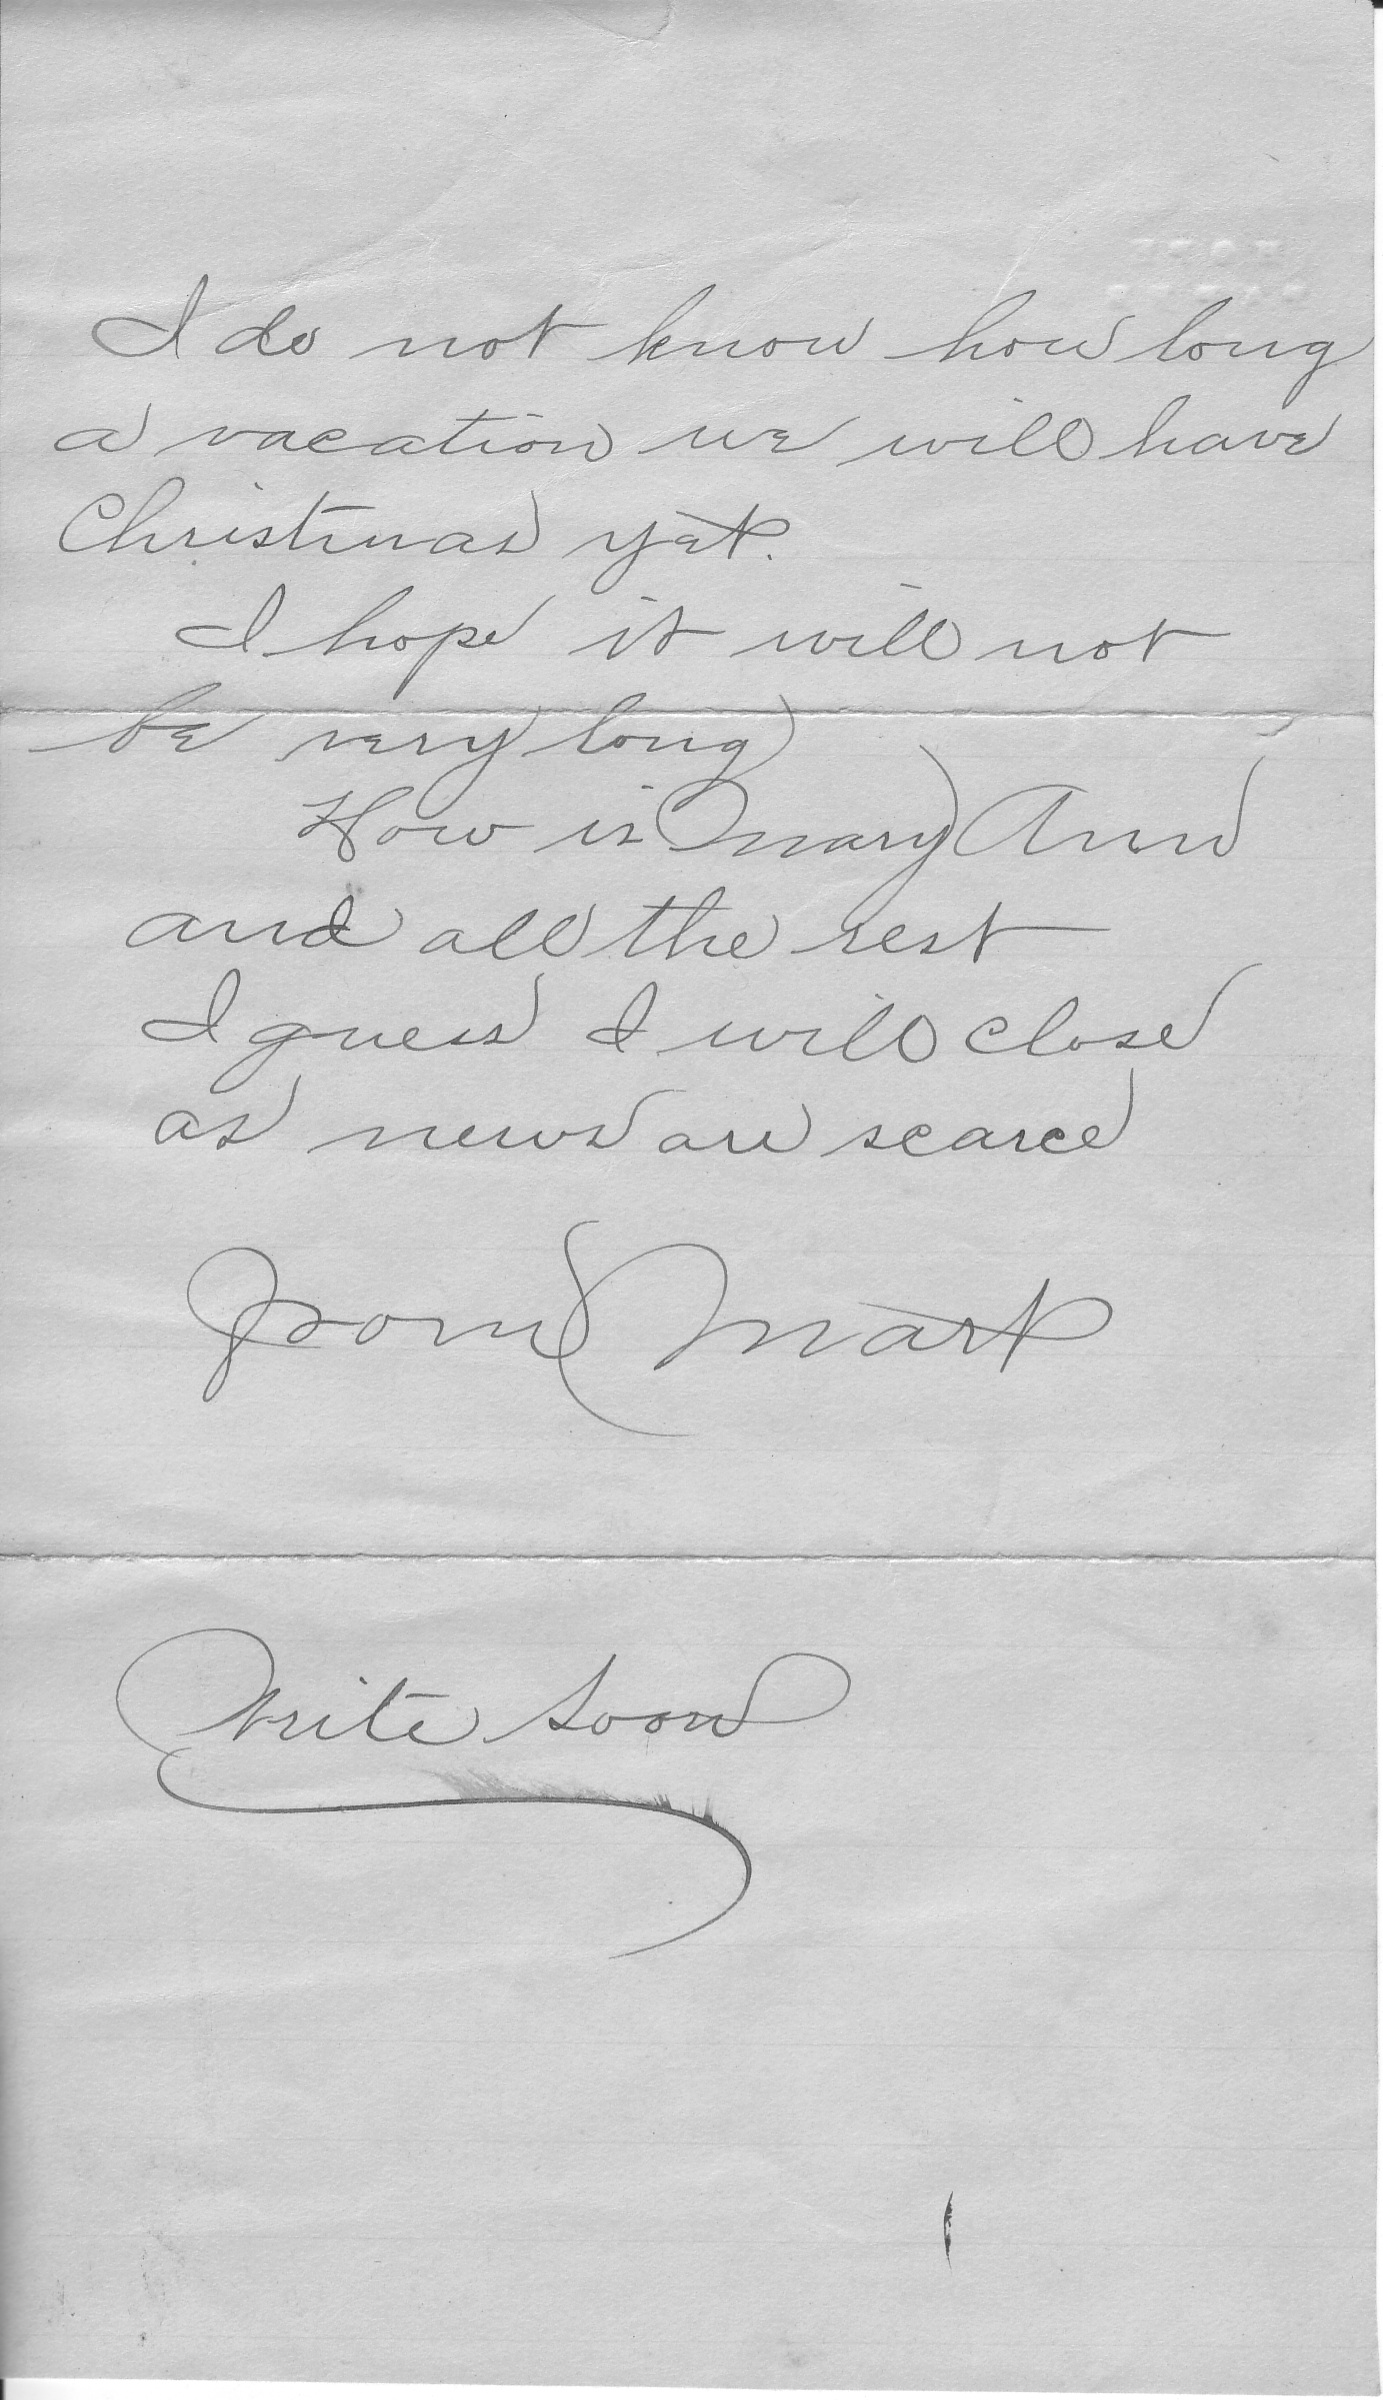 I do not know how long
a vacation we will have
Christmas yet.
I hope it will not
be very long
How is Mary Ann
and all the rest
I guess I will close
as news are scarce
From Mark
Write soon